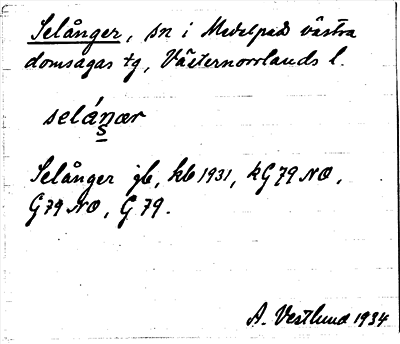 Selånger, sn i Medelpads västra
domsagas tg, Västernorrlands l.
selánær
s
Selånger jb, kb 1931, kG 79 NO,
G 79 NO, G 79.
A. Vestlund 1934